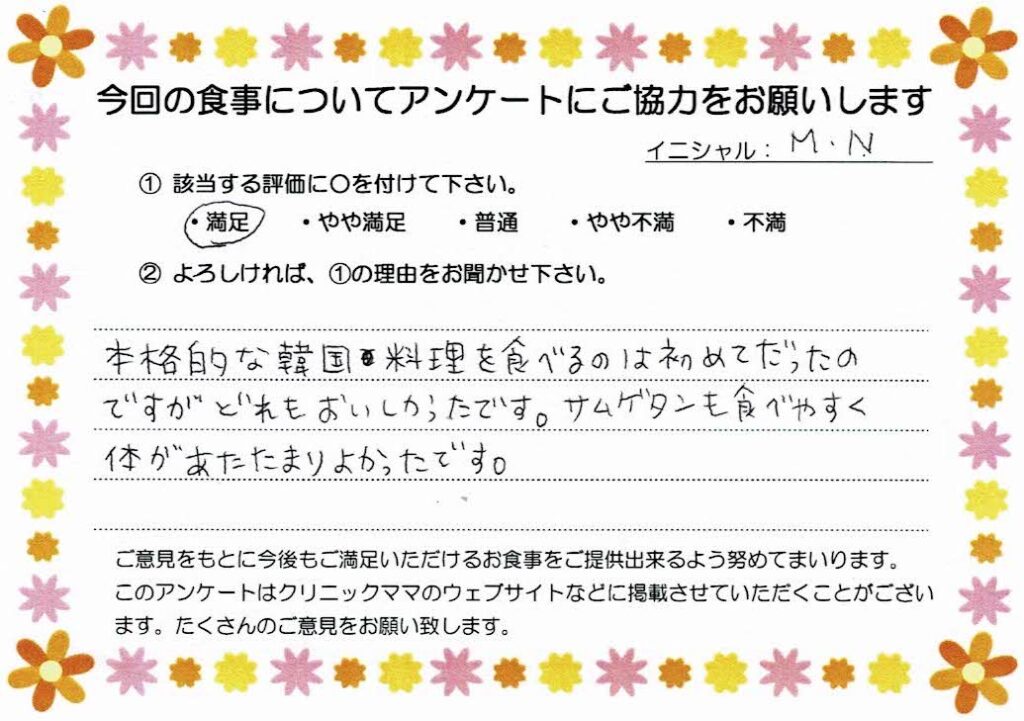 今回の食事についてアンケートにご協力をお願いします
イニシャル： M・N
① 該当する評価に〇を付けて下さい。
・満足 ・やや満足 ・普通 ・やや不満 ・不満
② よろしければ、①の理由をお聞かせ下さい。
本格的な韓国料理を食べるのは初めてだったの
ですがどれもおいしかったです。サムゲタンも食べやすく
体があたたまりよかったです。
ご意見をもとに今後もご満足いただけるお食事をご提供出来るよう努めてまいります。
このアンケートはクリニックママのウェブサイトなどに掲載させていただくことがござい
ます。たくさんのご意見をお願い致します。